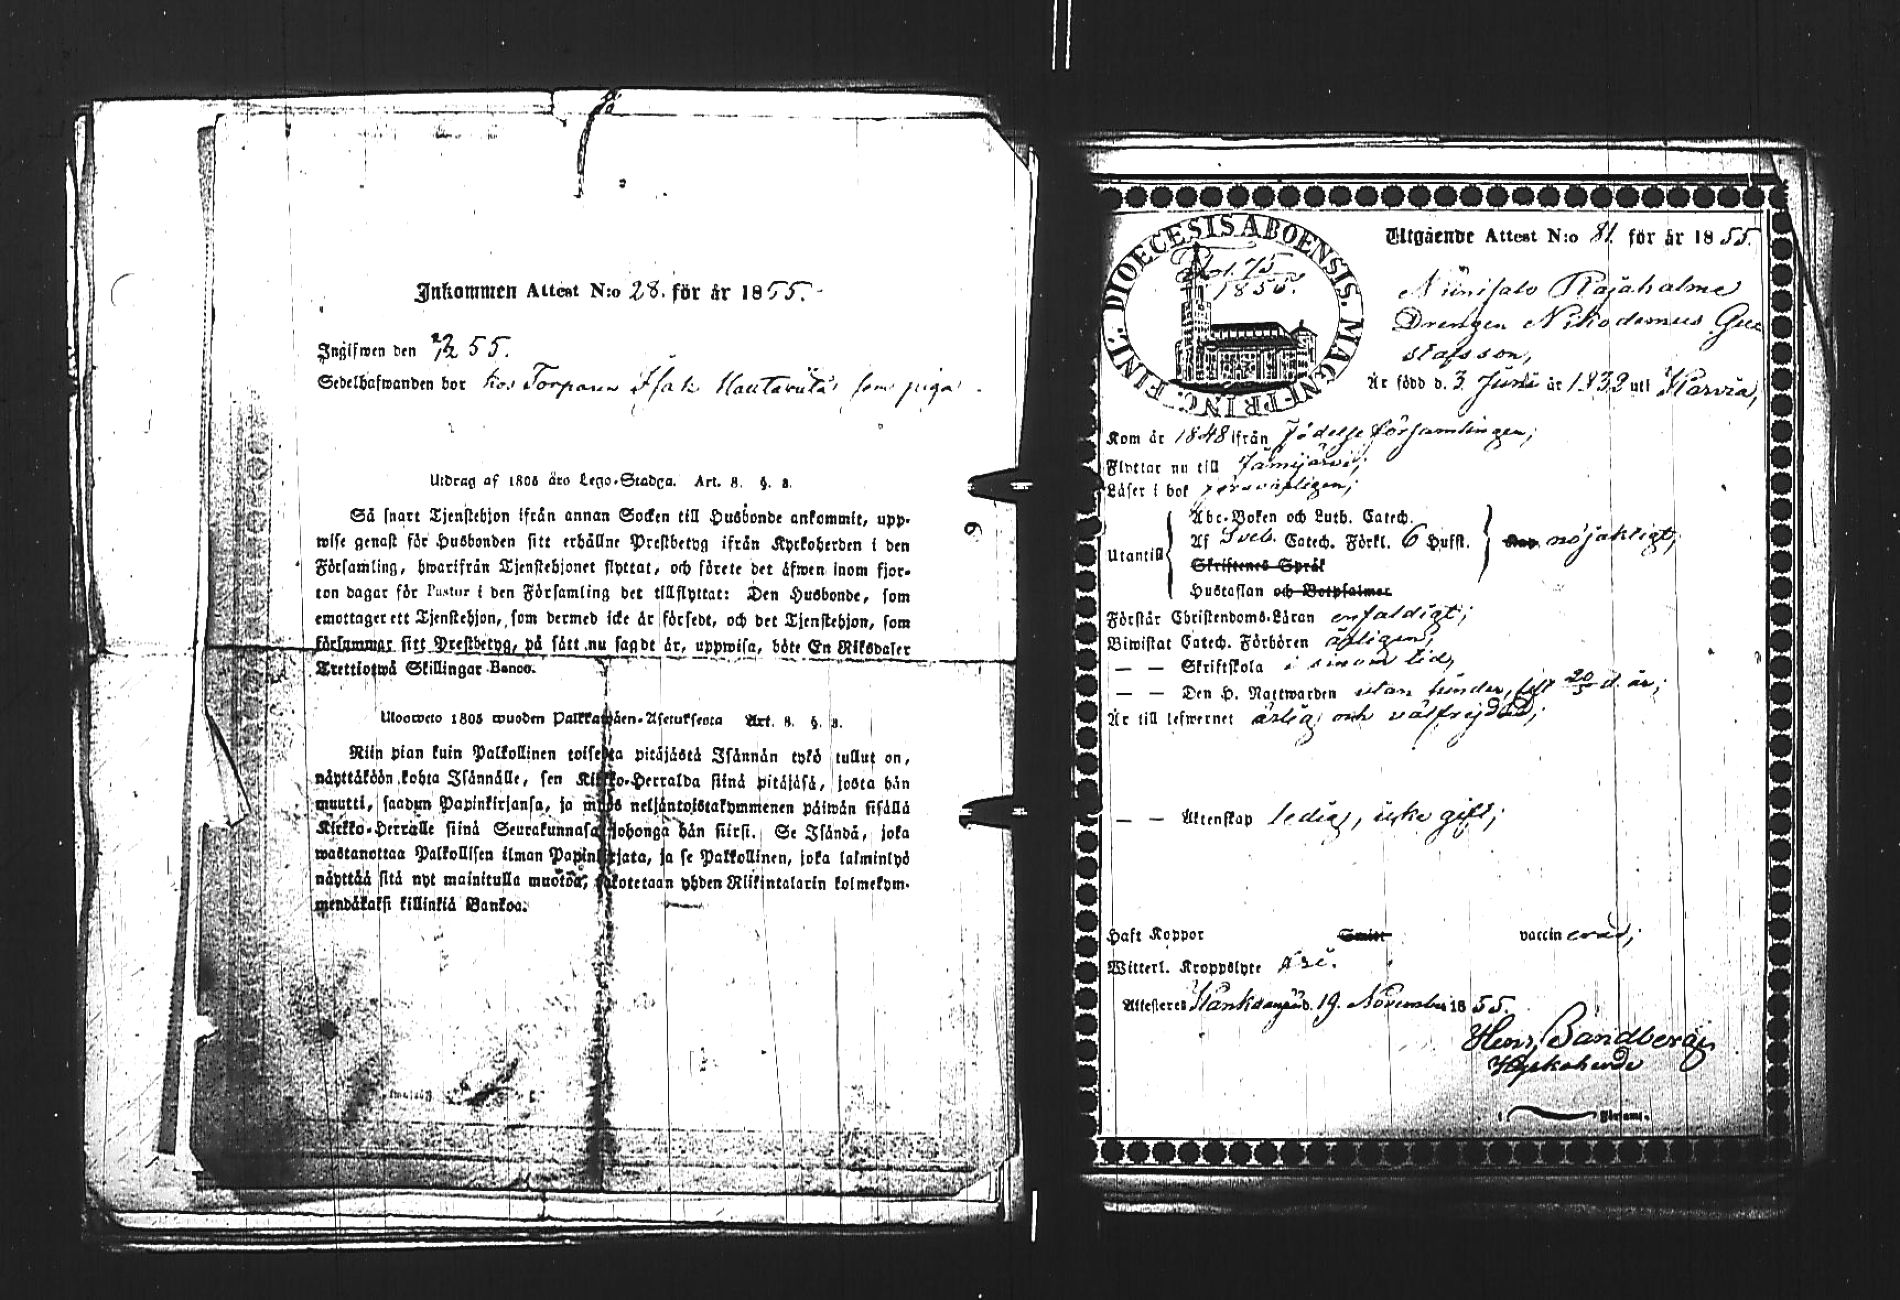 Inkommen Attest N:o 28. för år 1855.
Ingifwen den 55.
Sedelhafwanden bor hos Torparn Isak som piga
Utdrag af 1805 års Lego-Stadga. Art. 8. §. 8.
Så snart Tjenstehjon ifrån annan Socken till Husbonde ankommit, upp-
wise genast för Husbonden sitt erhållne Prestbetyg ifrån Kyrkoherden i den
Församling, hwarifrån Tjenstehjonet flyttat, och förete det äfwen inom fjor-
ton dagar för Pastor i den Församling det tillflyttat: Den Husbonde, som
emottager ett Tjenstehjon, som dermed icke är försedt, och det Tjenstehjon, som
försummar sitt Prestbetyg, på sätt nu sagdt är, uppwisa, böte En Riksdaler
Trettiotwå Skillingar Banco.
Uloosweto 1805 wuoden Palkkawäen-Asetuksesta Art. 8. §. 8.
Niin pian kuin Palkollinen toisesta pitäjästä Isännän tykö tullut on,
näyttäköön kohta Isännälle, sen Kirkko-Herralda siinä pitäjäsä, josta hän
muutti, saadun Papinkirjansa, ja myös neljäntoistakymmenen päiwän sisällä
Kirkko-Herralle siinä Seurakunnasa johonga hän siirsi. Se Isändä, joka
wastanottaa Palkollisen ilman Papinkirjata, ja se Palkollinen, joka laiminlyö
näyttää sitä nyt mainitulla muotoa, sakotetaan yhden Riikintalarin kolmekym-
mendäkaksi killinkiä Bankoa.
DIOECESIS ABOENSIS. MAGNI PRINC. FINL.
1855.
Utgående Attest N:o 81. för år 1855.
Niinisalo Rajahalme
Drengen Nikodemus Gu-
stafsson,
Är född d. 3 Juni år 1832 uti Karvia,
Kom år 1848 ifrån födelse församlingen;
Flyttar nu till Jämijärvi;
Läser i bok försvarligen;
Utantill
Abc-Boken och Luth. Catech.
Af Sveb. Catech. Förkl. 6 Hufst.
Skriftenes Språk
Hustaflan och Botpsalmer
nöjaktigt,
Förstår Christendoms-Läran enfaldigt;
Biwistat Catech. Förhören årligen;
— — Skriftskola i sinom tid,
— — Den H. Nattwarden utan hinder, sist 20/5 d. år;
Är till lefwernet ärlig och välfrejdad;
— — Äktenskap ledig, icke gift;
Haft Koppor Smitt vaccinerad;
Witterl. Kroppslyte
Attesteres d. 19. November 1855.
Henr. Sandberg
Kyrkoherde
i Församl.